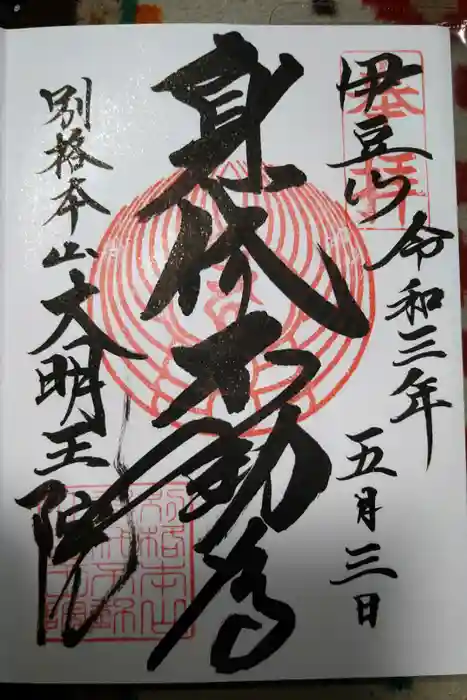 奉拝
伊豆山
令和三年
五月三日
身代不動尊
別格本山大明王院